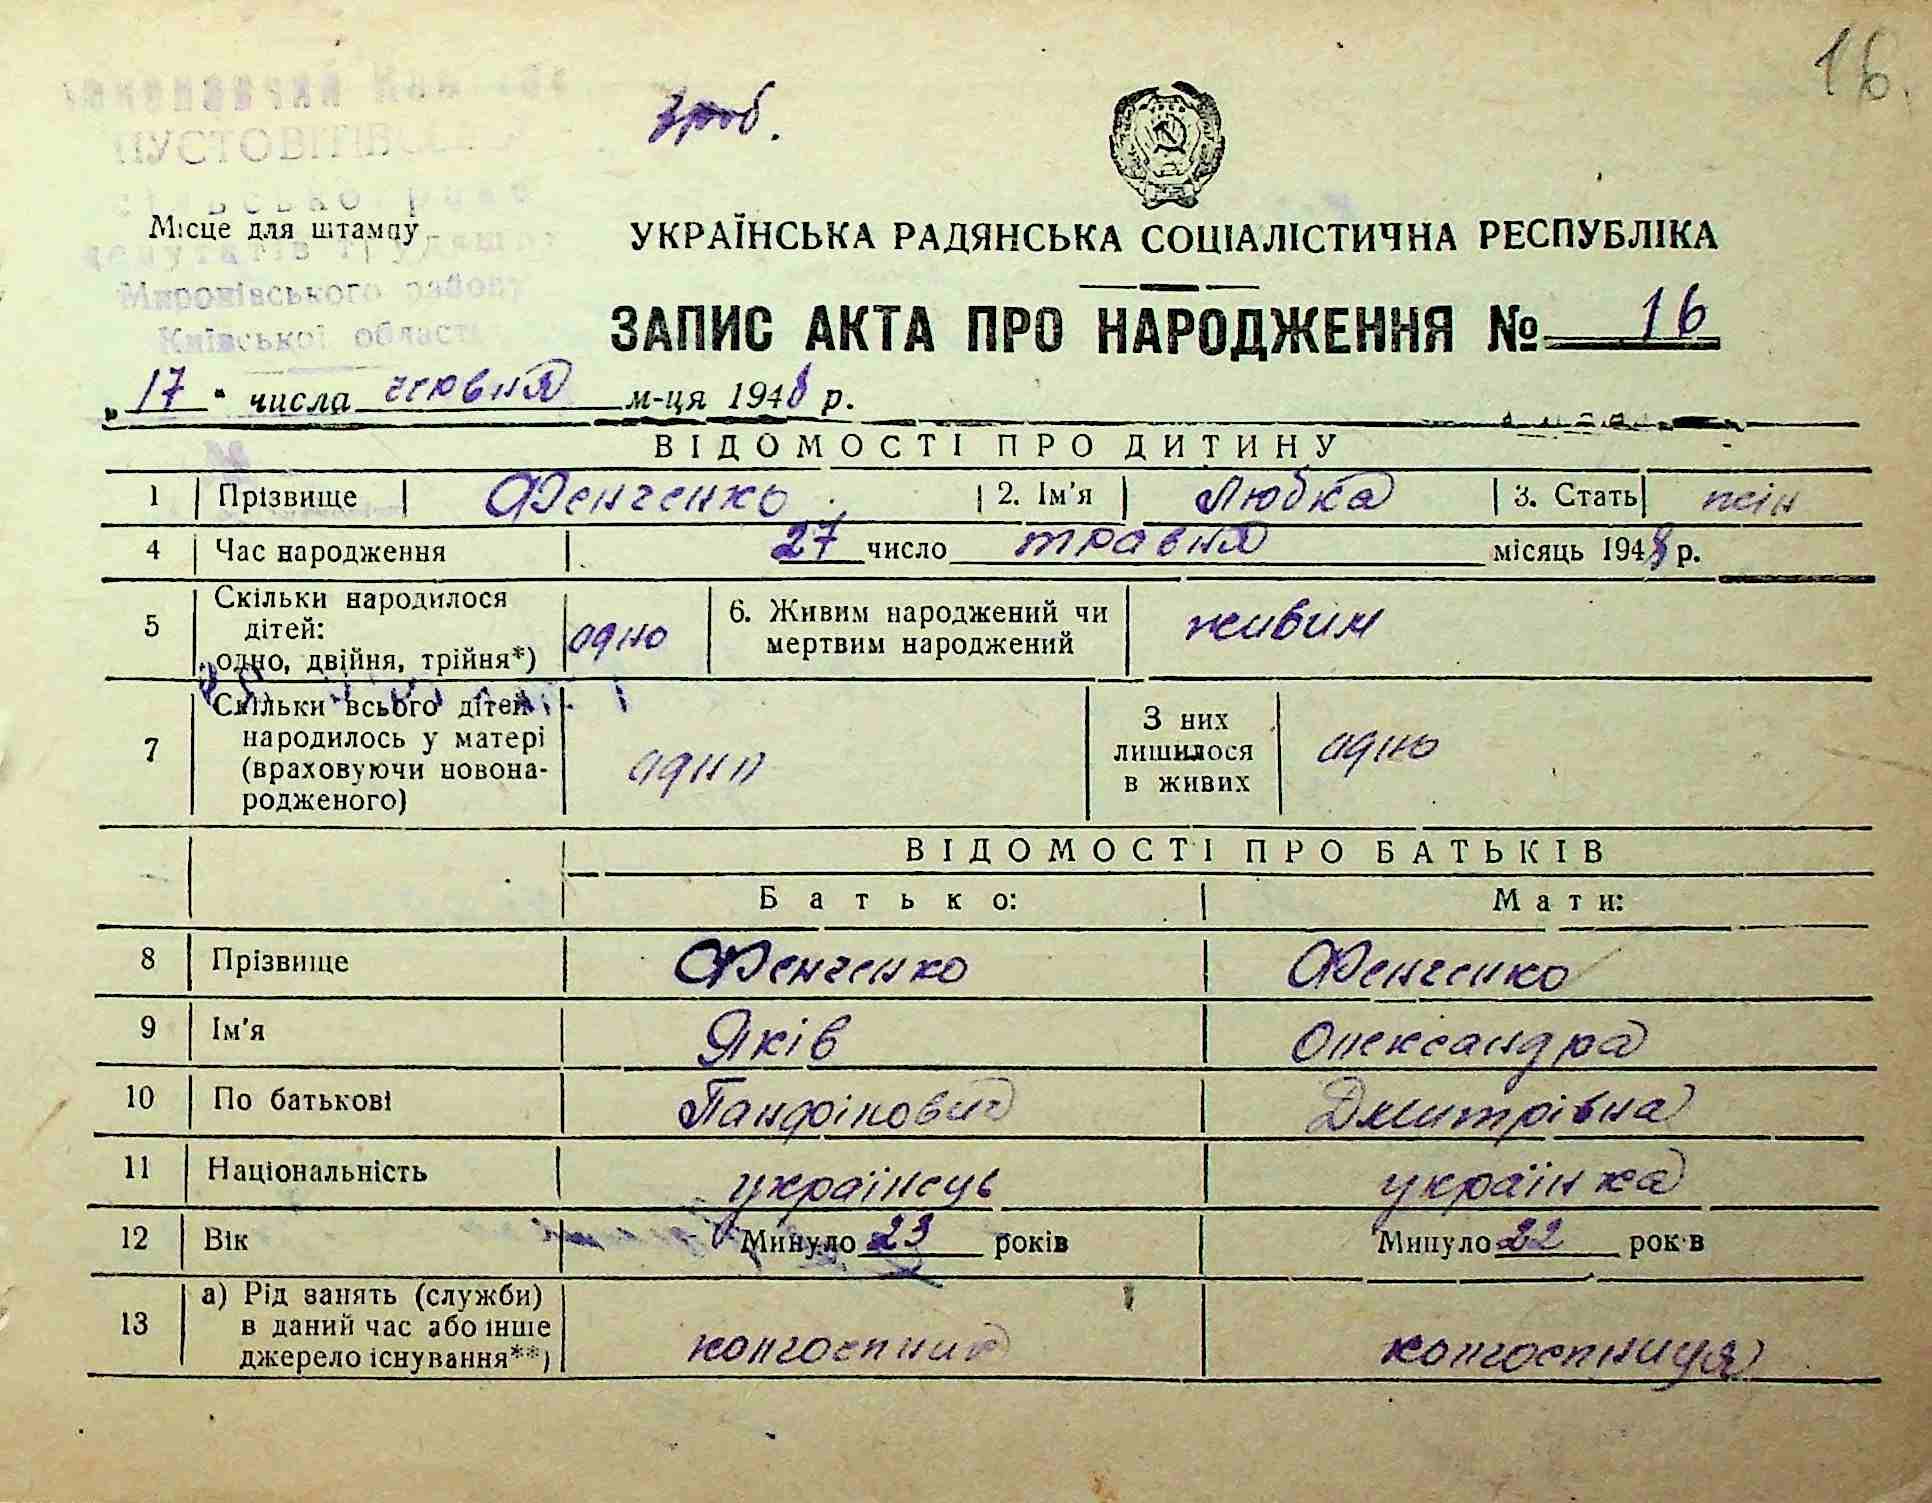 16
Зроб.
ПУСТОВІТІВСЬКОЇ
сільської ради
депутатів трудящих
Миронівського району
Київської області
Місце для штампу
УКРАЇНСЬКА РАДЯНСЬКА СОЦІАЛІСТИЧНА РЕСПУБЛІКА
ЗАПИС АКТА ПРО НАРОДЖЕННЯ № 16
„17" числа червня м-ця 1948 р.
ВІДОМОСТІ ПРО ДИТИНУ
1 Прізвище Фенченко 2. Ім'я Любка 3. Стать жін
4 Час народження 27 число травня місяць 1948 р.
5 Скільки народилося дітей: одно, двійня, трійня*) одно 6. Живим народжений чи мертвим народжений живим
7 Скільки всього дітей народилось у матері (враховуючи новонародженого) один З них лишилося в живих одно
ВІДОМОСТІ ПРО БАТЬКІВ
Батько: Мати:
8 Прізвище Фенченко Фенченко
9 Ім'я Яків Олександра
10 По батькові Панфілович Дмитрівна
11 Національність українець українка
12 Вік Минуло 23 років Минуло 22 років
13 а) Рід занять (служби) в даний час або інше джерело існування**) колгоспник колгоспниця